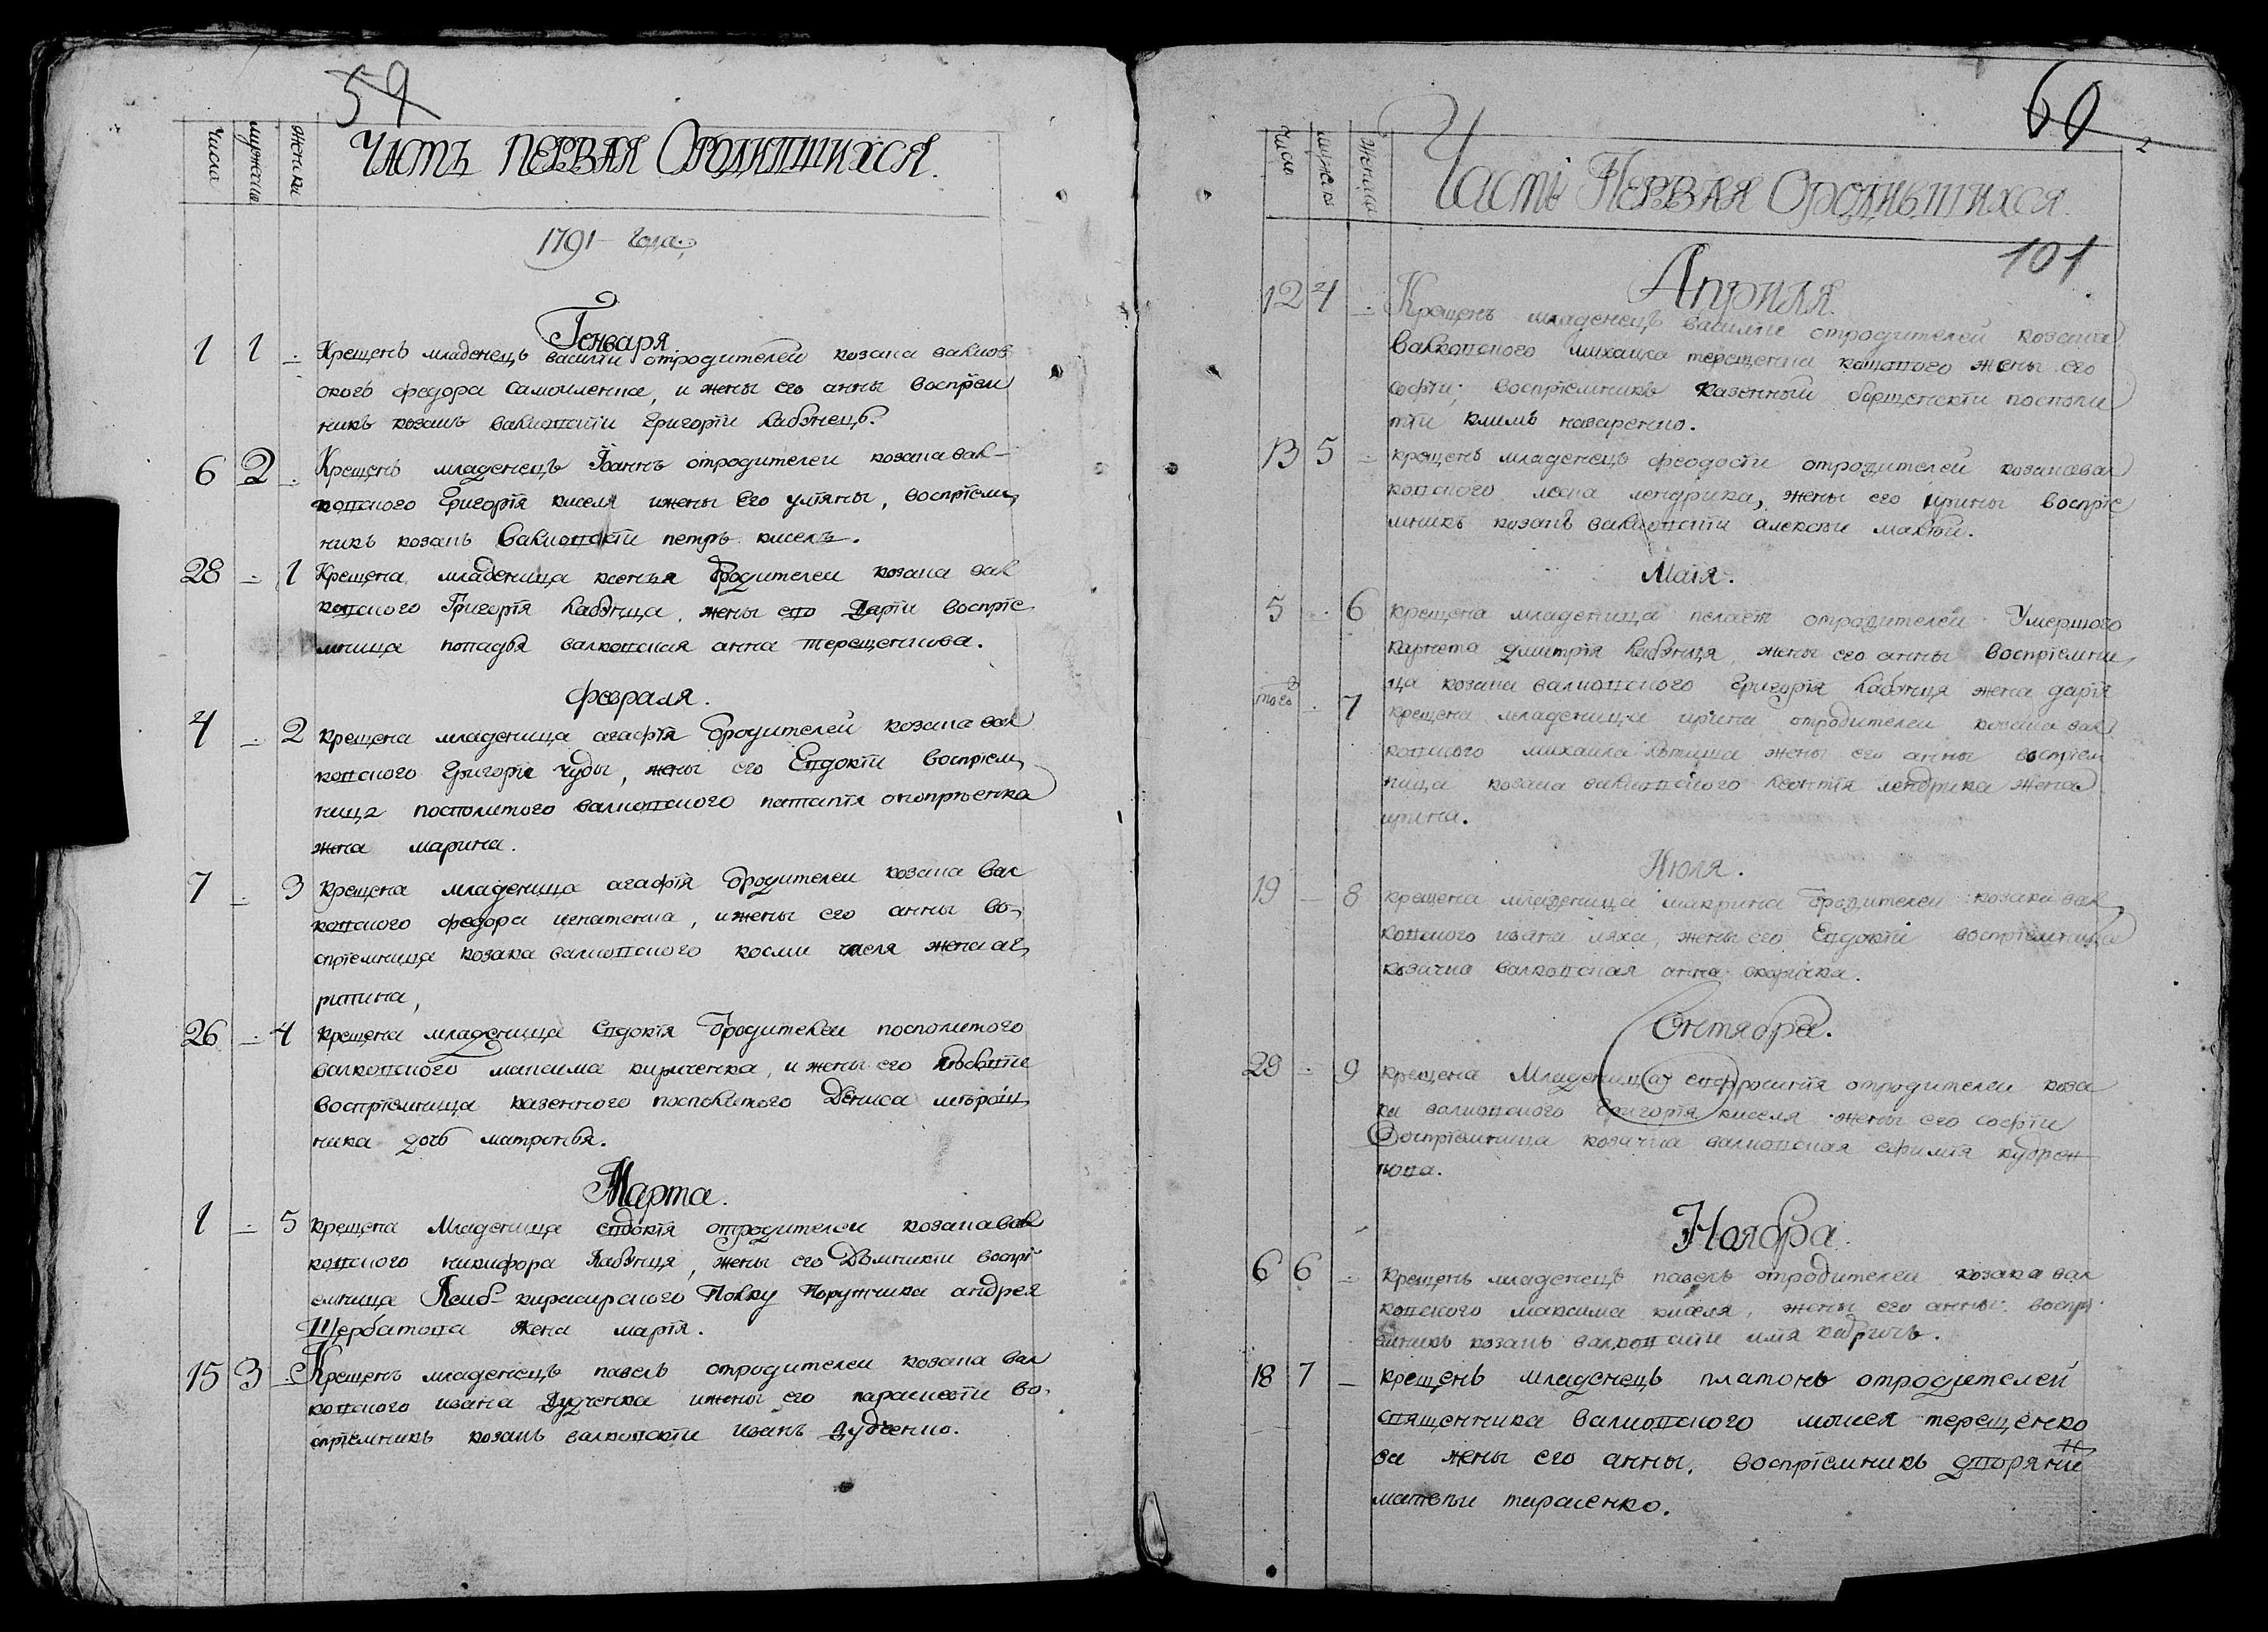 59
числа мужеска женска
ЧАСТЬ ПЕРВАЯ ОРОДИВШИХСЯ.
1791 года;
Генваря
1 1 -. Крещенъ младенецъ василїи отродителей козака валков
ского федора самойленка, и жены его анны воспрїем
никъ козакъ валковскїи григорїи кабэнець.
6 2 -. Крещенъ младенецъ Їоаннъ отродителеи козака вал-
ковского григорїя киселя ижены Его улїяны, воспрїем,
никъ козакъ валковскїи петръ киселъ.
28 -. 1 Крещена младеница ксенья ѿродителеи козака вал
ковского Григорїя кабэнца, жены его Дарїи воспрїе
мница попадья валковская анна терещенкова.
февраля.
4 -. 2 крещена младеница агафїя ѿродителей козака вал
ковского григорїя чуды, жены его Евдокїи воспрїем,
ница посполитого валковского потапїя оноприенка
жена марина.
7 -. 3 крещена младеница агафїя ѿродителеи козака вал
ковского федора игнатенка, ижены его анны во-
спрїемница козака валковского косми киселя жена аг,
рипина,
26 -. 4 крещена младеница Евдокїя ѿродителеи посполитого
валковского максима кириченка, и жены его
воспрїемница казенного посполитого Дениса мѣрош
ника дочь матронья.
Марта.
1 -. 5 крещена Младеница евдокїя отродителеи козака вал
ковского никифора кабэнця, жены его Домникїи воспрї
емница Леиб-кирасирского Полку Поручика андрея
Щербатова жена марїя.
15 3 -. Крещенъ младенецъ павелъ отродителеи козака вал
ковского ивана Дудченка ижены его параскевїи во-
спрїемникъ козакъ валковскїи иванъ дудченко.
60
2
число мужеска женска
Часть ПЕРВАЯ ОРОДИВШИХСЯ.
101
Априля.
12 4 -. Крещенъ младенецъ василїи отродителей козака
валковского михаила терещенка жены его
софїи; воспрїемникъ казенный борщенскїи посполи
тїи климъ назаренко.
13 5 -. крещенъ младенецъ феодосїи отродителей козака вал
ковского леска лендрика, жены его ирины воспрїе
мникъ козакъ валковскїи алексѣи
Маїя.
5 -. 6 крещена младеница отродителеи Умершого
карнета димитрїя кабэнця, жены его анны воспрїемни,
ца козака валковского григорїя кабэнця жена дарїя
того -. 7 крещена младеница ирина отродителеи козака вал
ковского михаила жены его анны воспрїем
ница козака валковского леонтїя лендрика жена
ирина.
Июля.
19 - 8 крещена младеница макрина ѿродителеи козака вал,
ковского ивана ляха, жены его Евдокїи воспрїемница
козачка валковская анна
Октября.
29 -. 9 крещена Младеница ефросинїя отродителеи коза
ка валковского григорїя киселя жены его софїи
Воспрїемница козачка валковская ефимїя кудрен
кова.
Ноября.
6 6 -. крещенъ младенецъ павелъ отродителеи козака вал
ковского максима киселя, жены его анны. воспрї
емникъ козакъ валковскїи илїя
18 7 - крещенъ младенецъ платонъ отродителей
священника валковского моисея терещенко
ва жены его анны, воспрїемникъ дворянин
матвѣи тарасенко.